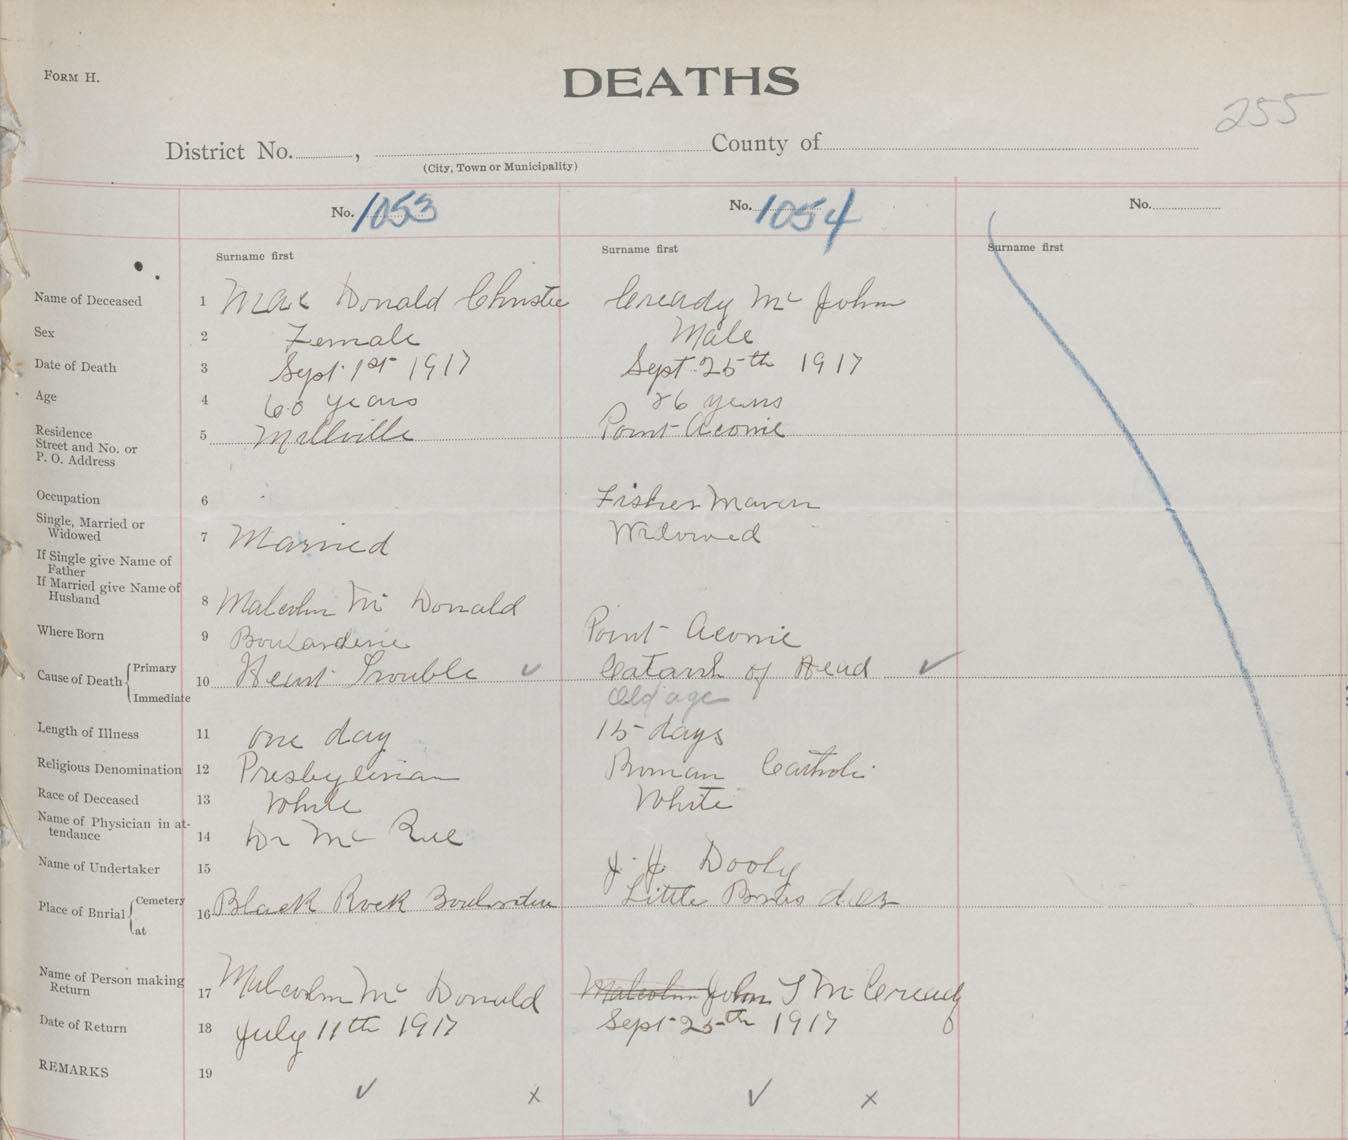 FORM H.
DEATHS
255
District No. , County of
(City, Town or Municipality)
No. 1053 No. 1054 No.
Surname first Surname first Surname first
Name of Deceased 1 Mac Donald Christie Cready Mc John
Sex 2 Female Male
Date of Death 3 Sept. 1st 1917 Sept. 25th 1917
Age 4 60 years 26 years
Residence
Street and No. or
P. O. Address
5 Millville Point Aconie
Occupation 6 Fisher
Single, Married or
Widowed
7 Married Widowed
If Single give Name of
Father
If Married give Name of
Husband
8 Malcolm Mc Donald
Where Born 9 Boularderie Point Aconie
Cause of Death { Primary
Immediate
10 Heart Trouble ✓ Catarrh of Head ✓
Old age
Length of Illness 11 one day 15 days
Religious Denomination 12 Presbyterian Roman Catholic
Race of Deceased 13 White White
Name of Physician in at-
tendance
14 Dr Mc Rae
Name of Undertaker 15 J. J. Dooly
Place of Burial { Cemetery
at
16 Black Rock Boularderie Little Bras dor
Name of Person making
Return
17 Malcolm Mc Donald Malcolm John Mc Cready
Date of Return 18 July 11th 1917 Sept 25th 1917
REMARKS 19
✓ x ✓ x